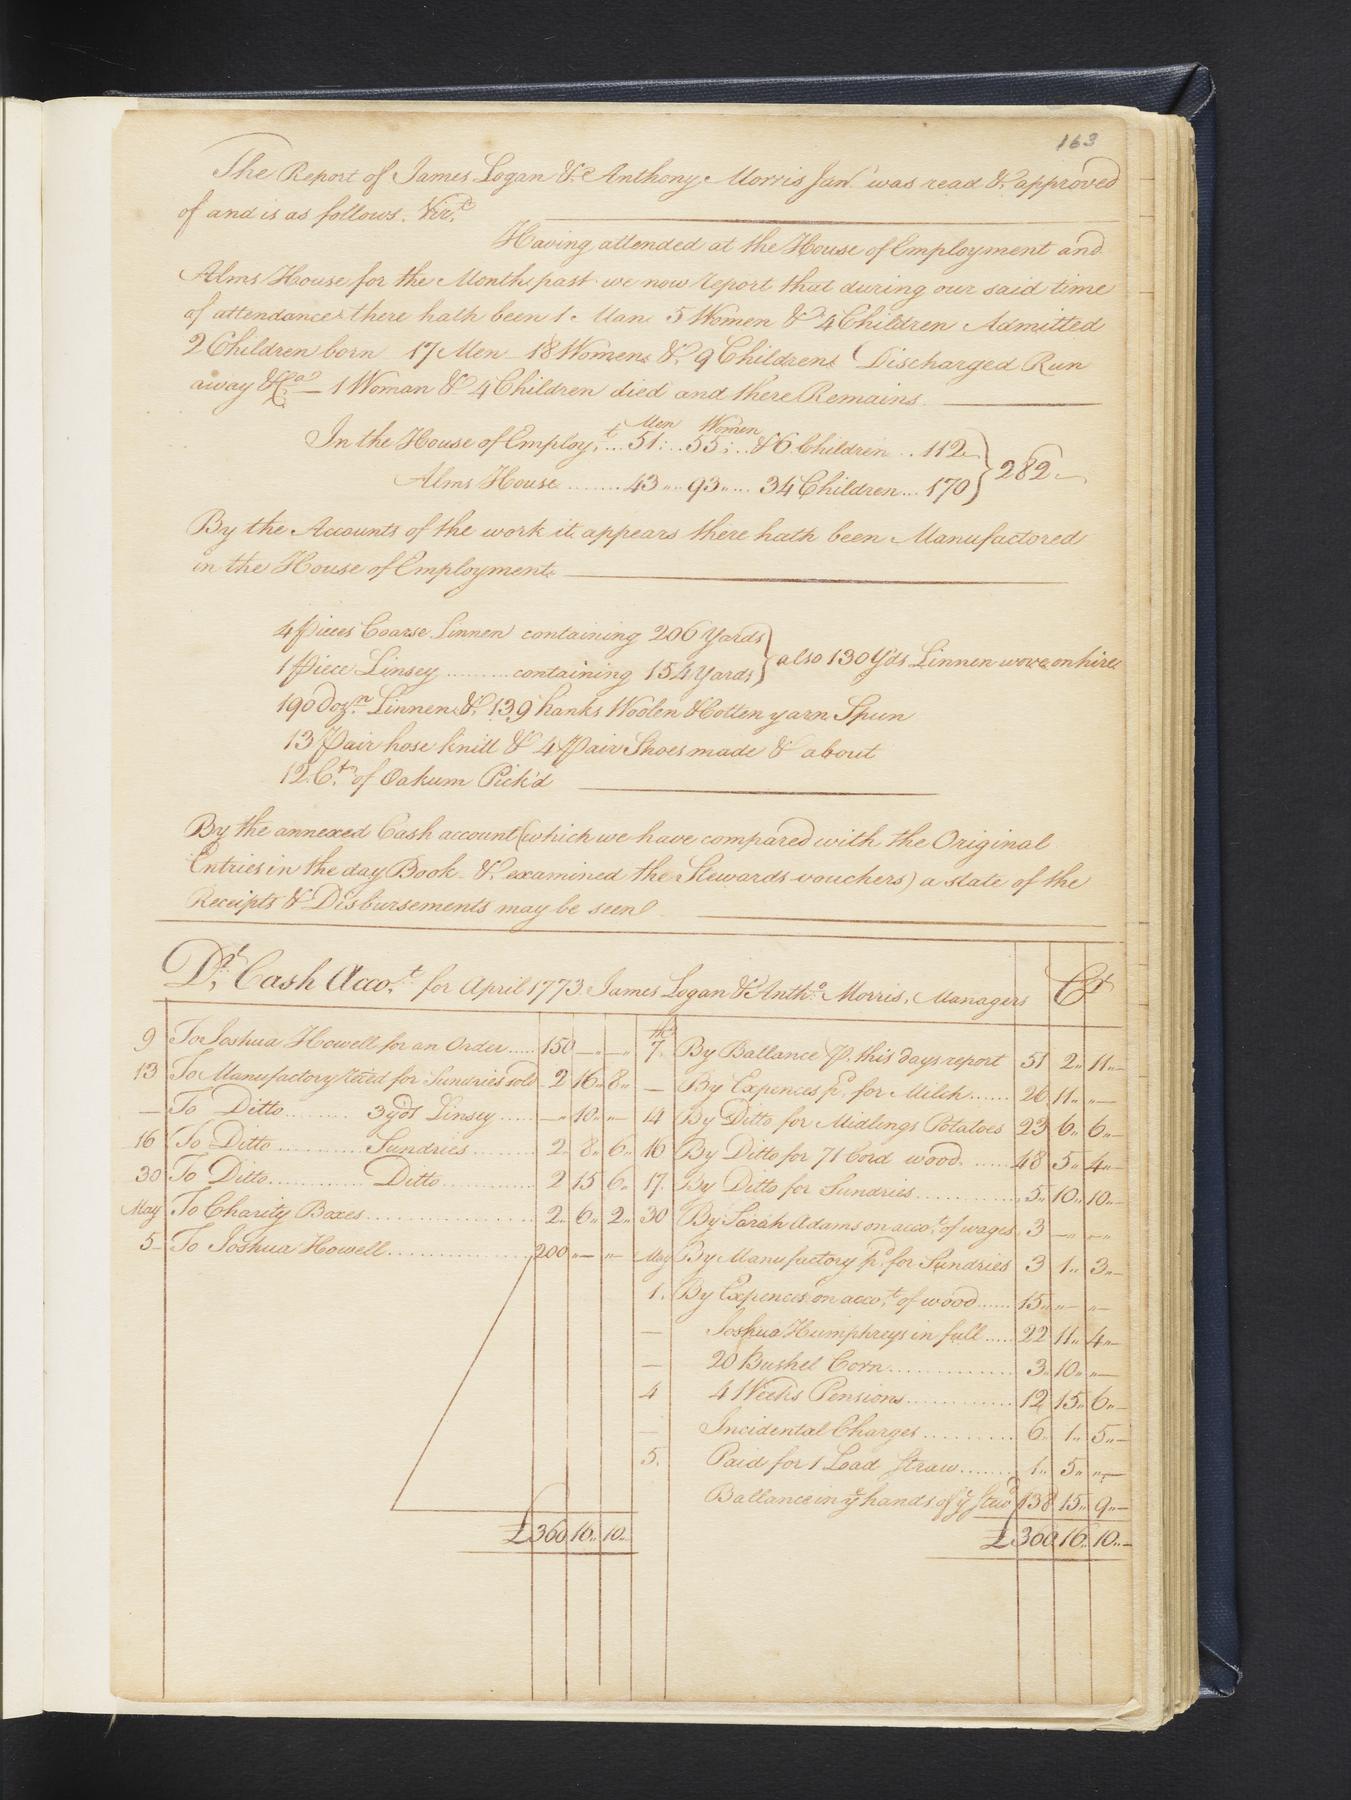 163
The Report of James Logan & Anthony Morris Junr. was read & approved
of and is as follows. Vizt.
Having attended at the House of Employment and
Alms House for the Month past we now report that during our said time
of attendance there hath been 1 Man 5 Women & 4 Children Admitted
2 Children born 17 Men 18 Women & 9 Children Discharged Run
away &Ca. — 1 Woman & 4 Children died and there Remains.
Men Women
In the House of Employt. ... 51 .. 55 .. & 6 Children .. 112
282
Alms House ........ 43 .. 93 .... 34 Children ... 170
By the Accounts of the work it appears there hath been Manufactored
in the House of Employment
4 pieces Coarse Linnen containing 206 Yards
also 130 Yds Linnen wove on hire
1 piece Linsey .......... containing 154 Yards
190 Dozn. Linnen & 139 hanks Woolen & Cotten yarn Spun
13 pair hose knitt & 4 pair Shoes made & about
12 Ct. of Oakum Pick'd
By the annexed Cash account (which we have compared with the Original
Entries in the day Book & examined the Stewards vouchers) a state of the
Receipts & Disbursements may be seen
Dr. Cash Accot. for April 1773 James Logan & Antho. Morris, Managers Cr
9 To Joshua Howell for an Order ..... 150 — —
13 To Manufactory rceed for Sundries sold 2 16 8
— To Ditto ......... 3 yds Linsey ..... — 10 —
16 To Ditto ............ Sundries ......... 2 8 6
30 To Ditto ............ Ditto ............. 2 15 6
May To Charity Boxes .................. 2 6 2
5 To Joshua Howell ............... 200 — —
£360 16 10
7 By Ballance p. this days report 51 2 11
— By Expences pd. for Milch ...... 26 11 —
14 By Ditto for Midlings Potatoes 23 6 6
16 By Ditto for 71 Cord wood ...... 48 5 4
17 By Ditto for Sundries ............ 5 10 10
30 By Sarah Adams on accot. of wages 3 — —
May By Manufactory pd. for Sundries 3 1 3
1. By Expences on accot. of wood ...... 15 — —
— Joshua Humphreys in full ..... 22 11 4
— 20 Bushel Corn ............. 3 10 —
4 4 Weeks Pensions ............ 12 15 6
— Incidental Charges .......... 6 1 5
5. Paid for 1 Load Straw ....... 1 5 —
Ballance in ye hands of ye Stewd 138 15 9
£360 16 10